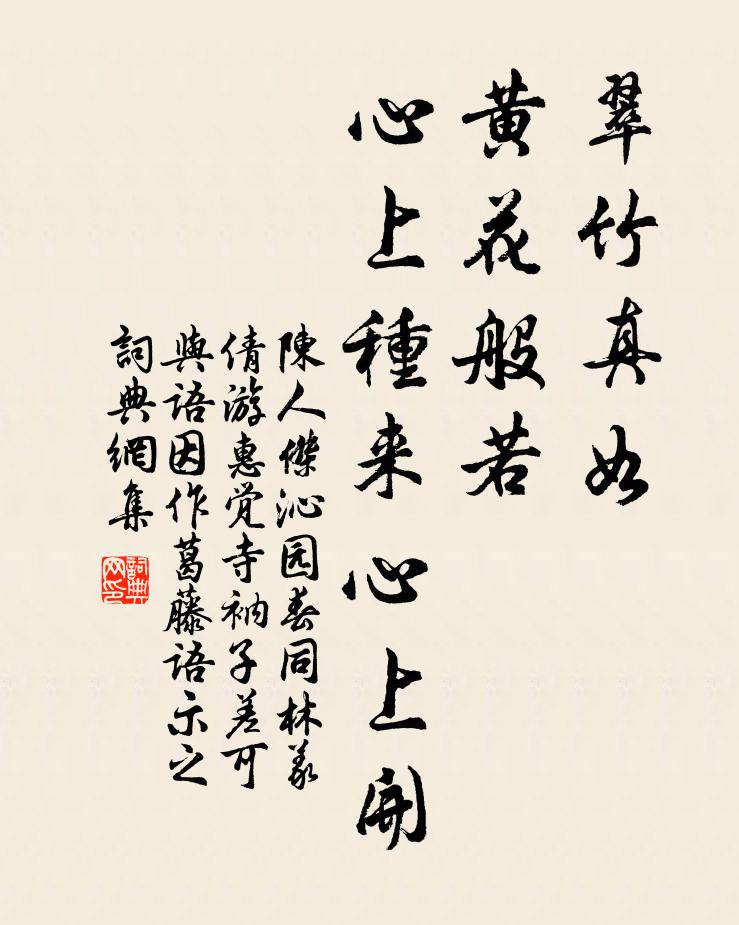 翠竹真如
黄花般若
心上種来心上開
陳人傑沁园春同林義
倩游惠覚寺衲子差可
與語因作葛藤語示之
詞典網集
詞典网印